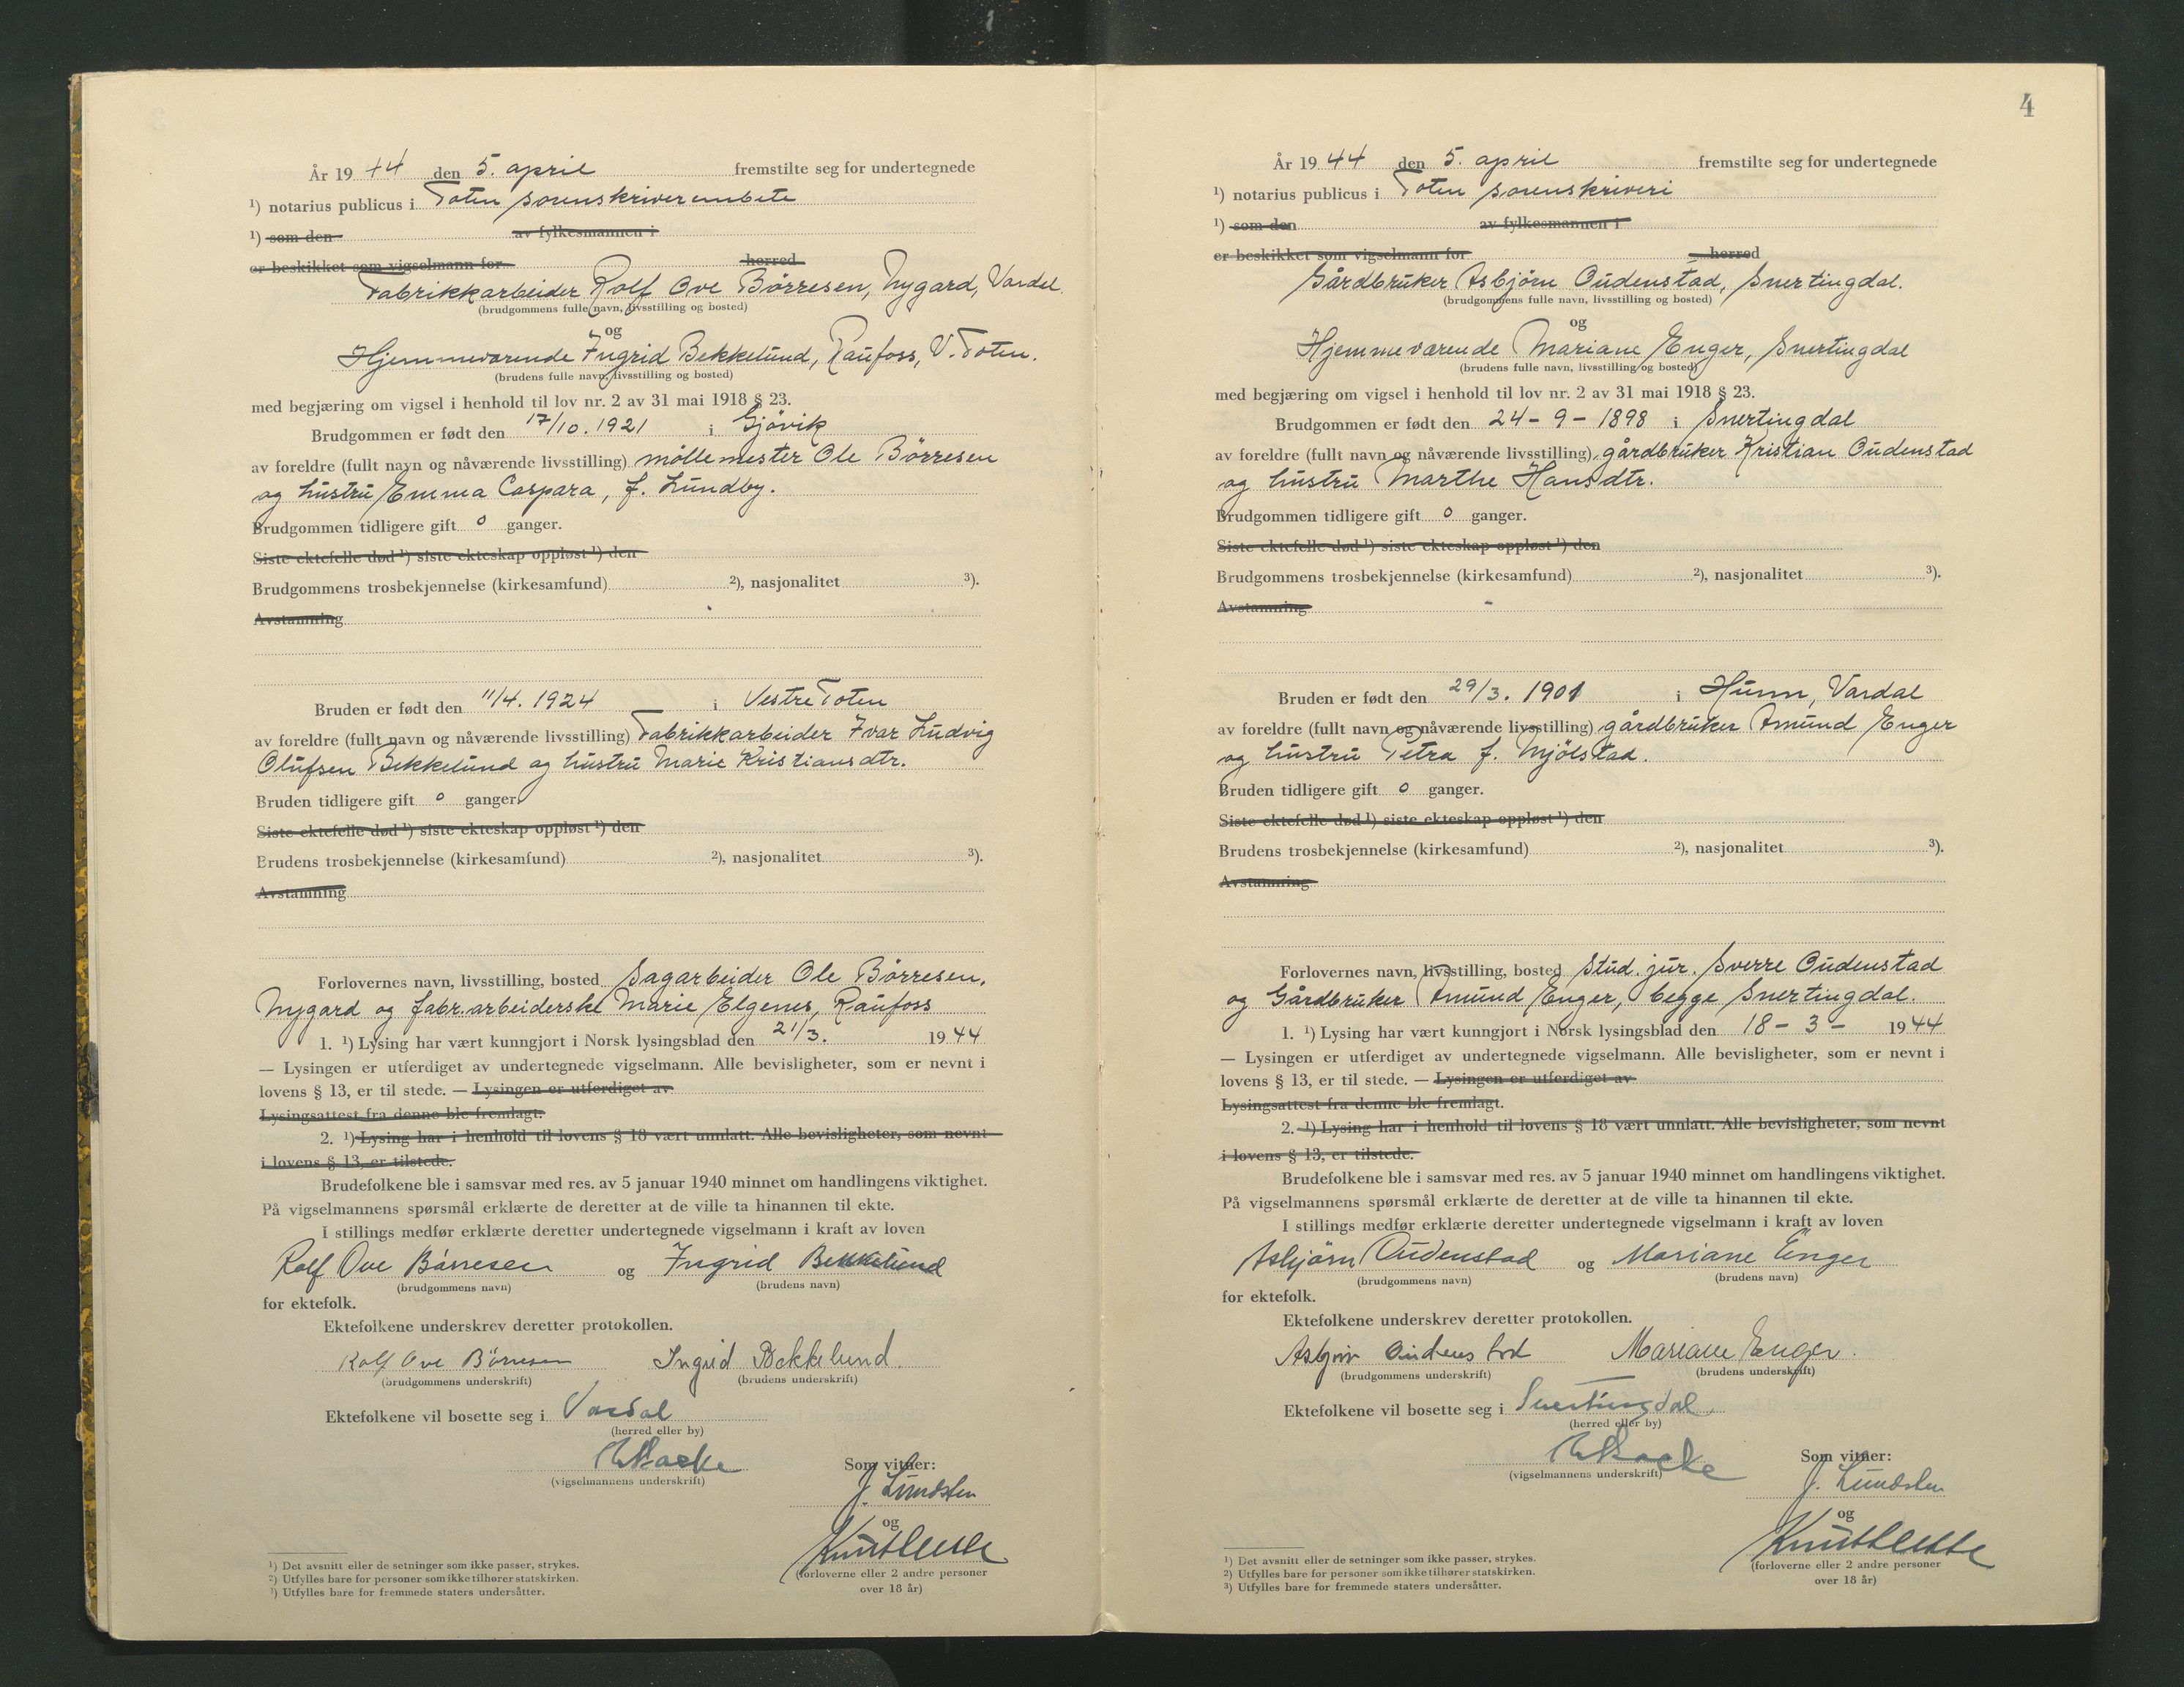 År 19 44 den 5. april fremstilte seg for undertegnede
¹) notarius publicus i Toten sorenskriverembete
¹) som den av fylkesmannen i
er beskikket som vigselmann for herred
Fabrikkarbeider Rolf Ove Børresen, Nygard, Vardal.
(brudgommens fulle navn, livsstilling og bosted)
og
Hjemmeværende Ingrid Bekkelund, Raufoss, V. Toten.
(brudens fulle navn, livsstilling og bosted)
med begjæring om vigsel i henhold til lov nr. 2 av 31 mai 1918 § 23.
Brudgommen er født den 17/10. 1921 i Gjøvik
av foreldre (fullt navn og nåværende livsstilling) møllemester Ole Børresen
og hustru Emma Caspara, f. Lundby.
Brudgommen tidligere gift 0 ganger.
Siste ektefelle død ¹) siste ekteskap oppløst ¹) den
Brudgommens trosbekjennelse (kirkesamfund) ²), nasjonalitet ³).
Avstamning
Bruden er født den 11/4. 1924 i Vestre Toten
av foreldre (fullt navn og nåværende livsstilling) Fabrikkarbeider Ivar Ludvig
Olufsen Bekkelund og hustru Marie Kristiansdtr.
Bruden tidligere gift 0 ganger.
Siste ektefelle død ¹) siste ekteskap oppløst ¹) den
Brudens trosbekjennelse (kirkesamfund) ²), nasjonalitet ³).
Avstamning
Forlovernes navn, livsstilling, bosted Sagarbeider Ole Børresen,
Nygard og fabr.arbeiderske Marie Elgenes, Raufoss
1. ¹) Lysing har vært kunngjort i Norsk lysingsblad den 21/3. 19 44
— Lysingen er utferdiget av undertegnede vigselmann. Alle bevisligheter, som er nevnt i
lovens § 13, er til stede. — Lysingen er utferdiget av
Lysingsattest fra denne ble fremlagt.
2. ¹) Lysing har i henhold til lovens § 18 vært unnlatt. Alle bevisligheter, som nevnt
i lovens § 13, er tilstede.
Brudefolkene ble i samsvar med res. av 5 januar 1940 minnet om handlingens viktighet.
På vigselmannens spørsmål erklærte de deretter at de ville ta hinannen til ekte.
I stillings medfør erklærte deretter undertegnede vigselmann i kraft av loven
Rolf Ove Børresen og Ingrid Bekkelund
(brudgommens navn) (brudens navn)
for ektefolk.
Ektefolkene underskrev deretter protokollen.
Rolf Ove Børresen Ingrid Bekkelund.
(brudgommens underskrift) (brudens underskrift)
Ektefolkene vil bosette seg i Vardal
(herred eller by)
(vigselmannens underskrift) Som vitner:
J. Lundsten
og
(forloverne eller 2 andre personer
over 18 år)
¹) Det avsnitt eller de setninger som ikke passer, strykes.
²) Utfylles bare for personer som ikke tilhører statskirken.
³) Utfylles bare for fremmede staters undersåtter.
4
År 19 44 den 5. april fremstilte seg for undertegnede
¹) notarius publicus i Toten sorenskriveri
¹) som den av fylkesmannen i
er beskikket som vigselmann for herred
Gårdbruker Asbjørn Oudenstad, Snertingdal.
(brudgommens fulle navn, livsstilling og bosted)
og
Hjemmeværende Mariane Enger, Snertingdal
(brudens fulle navn, livsstilling og bosted)
med begjæring om vigsel i henhold til lov nr. 2 av 31 mai 1918 § 23.
Brudgommen er født den 24 - 9 - 1898 i Snertingdal
av foreldre (fullt navn og nåværende livsstilling) gårdbruker Kristian Oudenstad
og hustru Marthe Hansdtr.
Brudgommen tidligere gift 0 ganger.
Siste ektefelle død ¹) siste ekteskap oppløst ¹) den
Brudgommens trosbekjennelse (kirkesamfund) ²), nasjonalitet ³).
Avstamning
Bruden er født den 29/3. 1901 i Hunn, Vardal
av foreldre (fullt navn og nåværende livsstilling) gårdbruker Amund Enger
og hustru Petra f. Mjølstad.
Bruden tidligere gift 0 ganger.
Siste ektefelle død ¹) siste ekteskap oppløst ¹) den
Brudens trosbekjennelse (kirkesamfund) ²), nasjonalitet ³).
Avstamning
Forlovernes navn, livsstilling, bosted Stud. jur. Sverre Oudenstad
og Gårdbruker Amund Enger, begge Snertingdal.
1. ¹) Lysing har vært kunngjort i Norsk lysingsblad den 18 - 3 - 19 44
— Lysingen er utferdiget av undertegnede vigselmann. Alle bevisligheter, som er nevnt i
lovens § 13, er til stede. — Lysingen er utferdiget av
Lysingsattest fra denne ble fremlagt.
2. ¹) Lysing har i henhold til lovens § 18 vært unnlatt. Alle bevisligheter, som nevnt
i lovens § 13, er tilstede.
Brudefolkene ble i samsvar med res. av 5 januar 1940 minnet om handlingens viktighet.
På vigselmannens spørsmål erklærte de deretter at de ville ta hinannen til ekte.
I stillings medfør erklærte deretter undertegnede vigselmann i kraft av loven
Asbjørn Oudenstad og Mariane Enger
(brudgommens navn) (brudens navn)
for ektefolk.
Ektefolkene underskrev deretter protokollen.
Asbjørn Oudenstad Mariane Enger.
(brudgommens underskrift) (brudens underskrift)
Ektefolkene vil bosette seg i Snertingdal
(herred eller by)
(vigselmannens underskrift) Som vitner:
J. Lundsten
og
(forloverne eller 2 andre personer
over 18 år)
¹) Det avsnitt eller de setninger som ikke passer, strykes.
²) Utfylles bare for personer som ikke tilhører statskirken.
³) Utfylles bare for fremmede staters undersåtter.